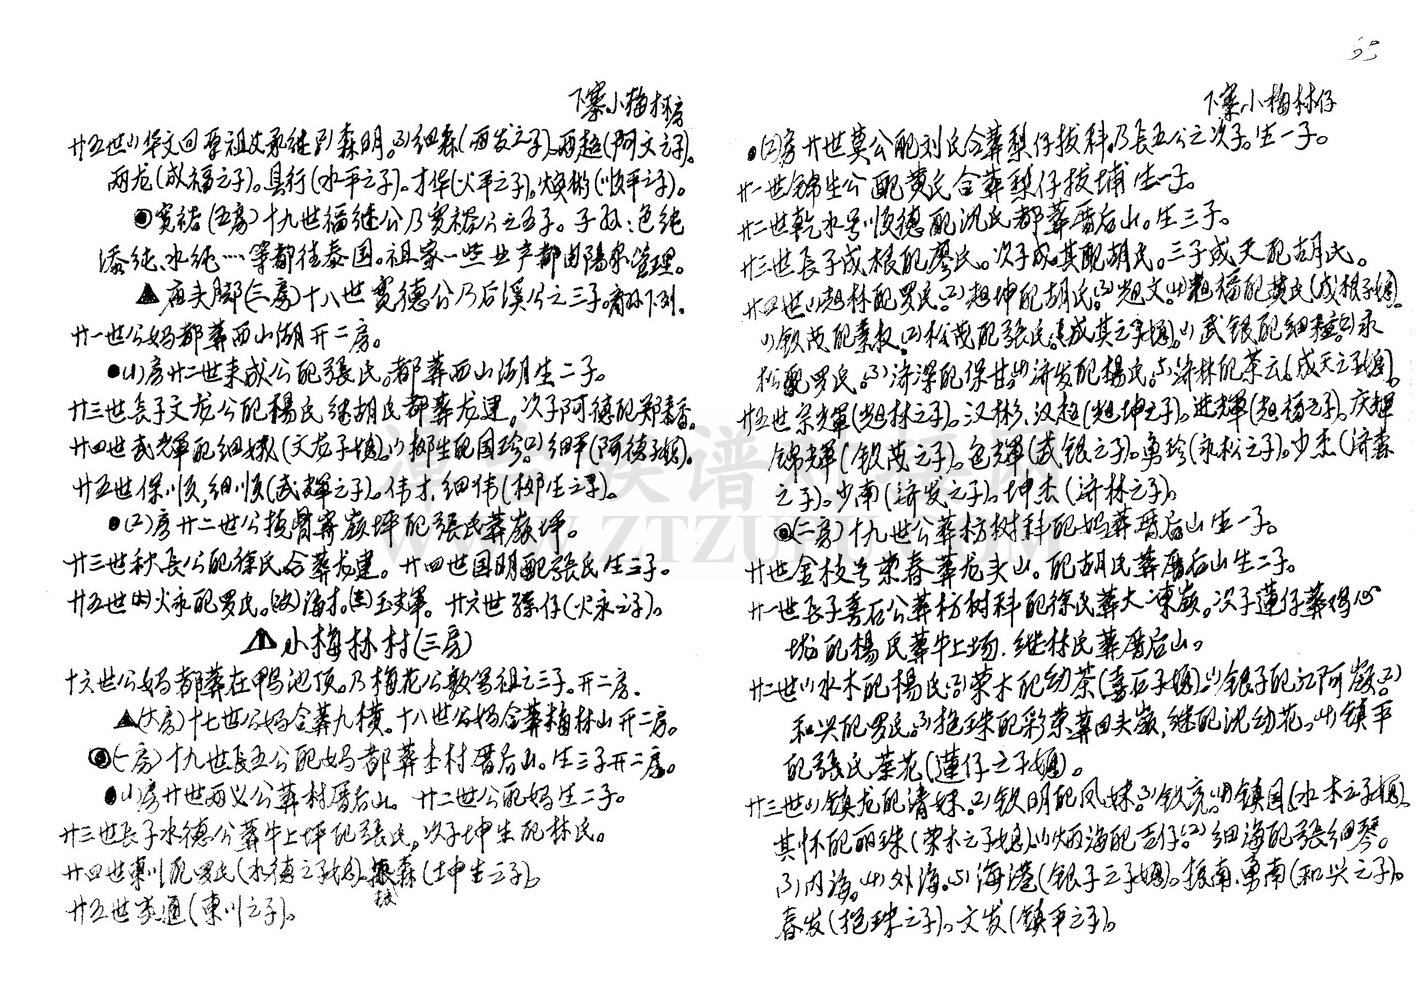 下寨小梅林房
廿五世(1)华文回原祖父承继(2)森明。(3)细森(两发之子)。两超(阿文之子)。
两龙(成福之子)。具行(水平之子)。才华(火平之子)。焕彬(顺平之子)。
宽裕(五房)十九世福继公乃宽裕公之五子。子孙:色纯
添纯、水纯…等都往泰国。祖家一些业产都由陽泉管理。
夜夹脚(三房)十八世宽德公乃后溪公之三子。裔孙下列.
廿一世公妈都葬西山湖开二房。
(1)房廿二世来成公配張氏。都葬西山湖生二子。
廿三世長子文龙公配楊氏继胡氏都葬龙建。次子阿德配郑春香。
廿四世武輝配细娥(文龙子媳)。(1)柳生配国珍。(2)细平(阿德子媳)。
廿五世保顺,细顺(武輝之子)。伟才.细伟(柳生之子)。
(2)房廿二世公拔骨寄嶽坪配張氏葬嶽坪。
廿三世秋長公配徐氏合葬龙建。廿四世国明配張氏生三子。
廿五世火永配罗氏。海才。玉輝。廿六世孫仔(火永之子)。
小梅林村(三房)
十六世公妈都葬在鸭池顶。乃梅花公敦笃祖之三子。开二房.
(大房)十七世公妈合葬九横。十八世公妈合葬梅林山开二房。
(一房)十九世長五公配妈都葬本村厝后山。生三子开二房。
(1)房廿世两义公葬村厝后山。廿二世公配妈生二子。
廿三世長子水德公葬牛上坪配張氏,次子坤生配林氏。
廿四世東川配罗氏(水德之子媳)。森(坤生之子)。
廿五世家通(東川之子)。
下寨小梅林仔
(2)房廿世莫公配刘氏合葬梨仔拔科.乃長五公之次子。生一子。
廿一世錦生公配黄氏合葬梨仔拔埔生一子。
廿二世乾水号顺德配沈氏都葬厝后山。生三子。
廿三世長子成根配廖氏。次子成其配胡氏。三子成天配胡氏。
廿四世(1)超林配罗氏。(2)超坤配胡氏。(3)超文。(4)超福配黄氏(成根子媳)。
(1)钦茂配素板.(2)松茂配張氏(成其之子媳)。(1)武银配细(2)永
松配罗氏。(3)济深配保甘。(4)济发配楊氏。(5)济林配茶云(成天之子媳)。
廿五世荣輝(超林之子)。汉彬、汉超(超坤之子)。进輝(超福之子)。庆輝
錦輝(钦茂之子)。色輝(武银之子)。勇珍(永松之子)。少杰(济森
之子)。少南(济发之子)。坤杰(济林之子)。
(二房)十九世公葬枋树科配妈葬厝后山生一子。
廿世金枝号荣春葬龙头山。配胡氏葬厝后山生二子。
廿一世長子喜石公葬枋树科配徐氏葬大凍嶽。次子蓮仔葬
坳配楊氏葬牛上场.继林民葬厝后山。
廿二世(1)水木配楊氏(2)荣木配幼茶(喜石子媳)。(1)银子配江阿嶽。(2)
和兴配罗氏。(3)抱珠配彩荣葬田头嶽,继配沈幼花。(4)镇平
配張氏菜花(蓮仔之子媳)。
廿三世(1)镇龙配清妹。(2)钦明配凤妹。(3)钦亮。(4)镇国(水木之子媳)。
其怀配丽珠(荣木之子媳)。(1)炳海配吉仔。(2)细海配張细琴。
(3)内海。(4)外海。(5)海港(银子之子媳)。接南.勇南(和兴之子)。
春发(抱珠之子)。文发(镇平之子)。
潭台族谱对接网
WWW.ZTZUPU.COM